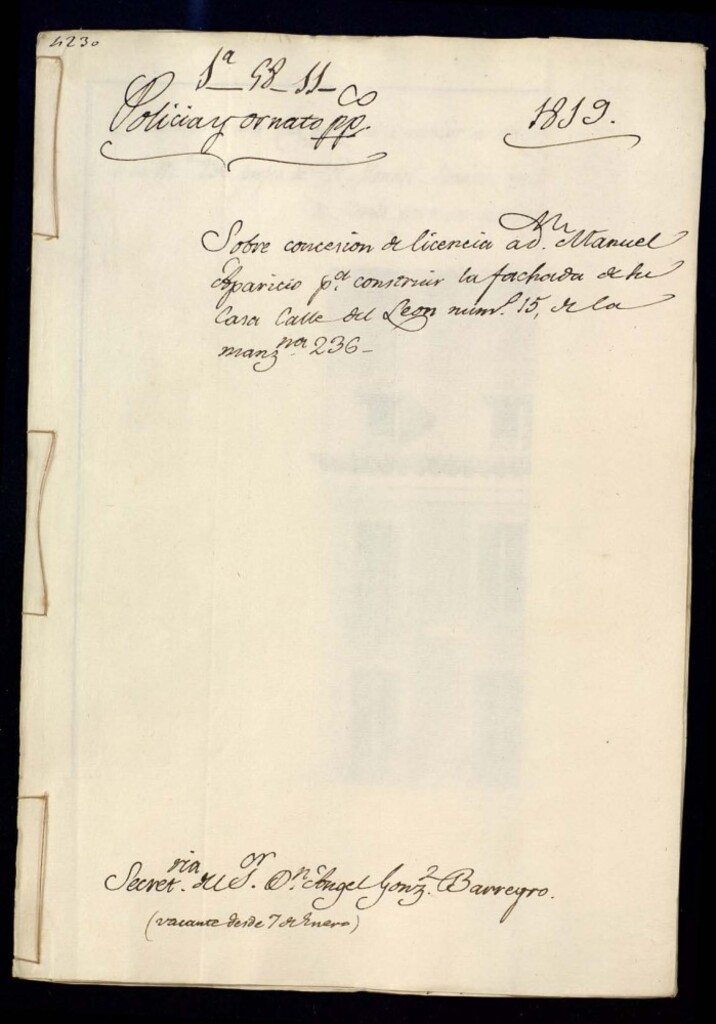 4230
1ª 58-11-
Policia y ornato pp.co
1819.
Sobre concesion de licencia a Dn. Manuel
Aparicio pª construir la fachada de su
Casa Calle del Leon num.º 15, de la
manzna 236-
Secretria del Sor. Dn Angel Gonz.z Barreyro.
(vacante desde 7 de Enero)